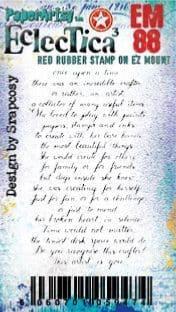 PaperArtsy
Eclectica³ EM
88
RED RUBBER STAMP ON EZ MOUNT
Design by Seapoosy
once upon a time
there was an incredible crafter
or rather, an artist
a collector of many useful items
She loved to play with paints
papers, stamps and inks
to create with her love hones
the most beautiful things
She would create for others
for family or for friends
but deep inside she knew
she was creating for herself
Just for fun or for a challenge
or just to mend
her broken heart in silence
Time would not matter,
the tunied dish years would do
Do you recognise this crafter?
this artist is you